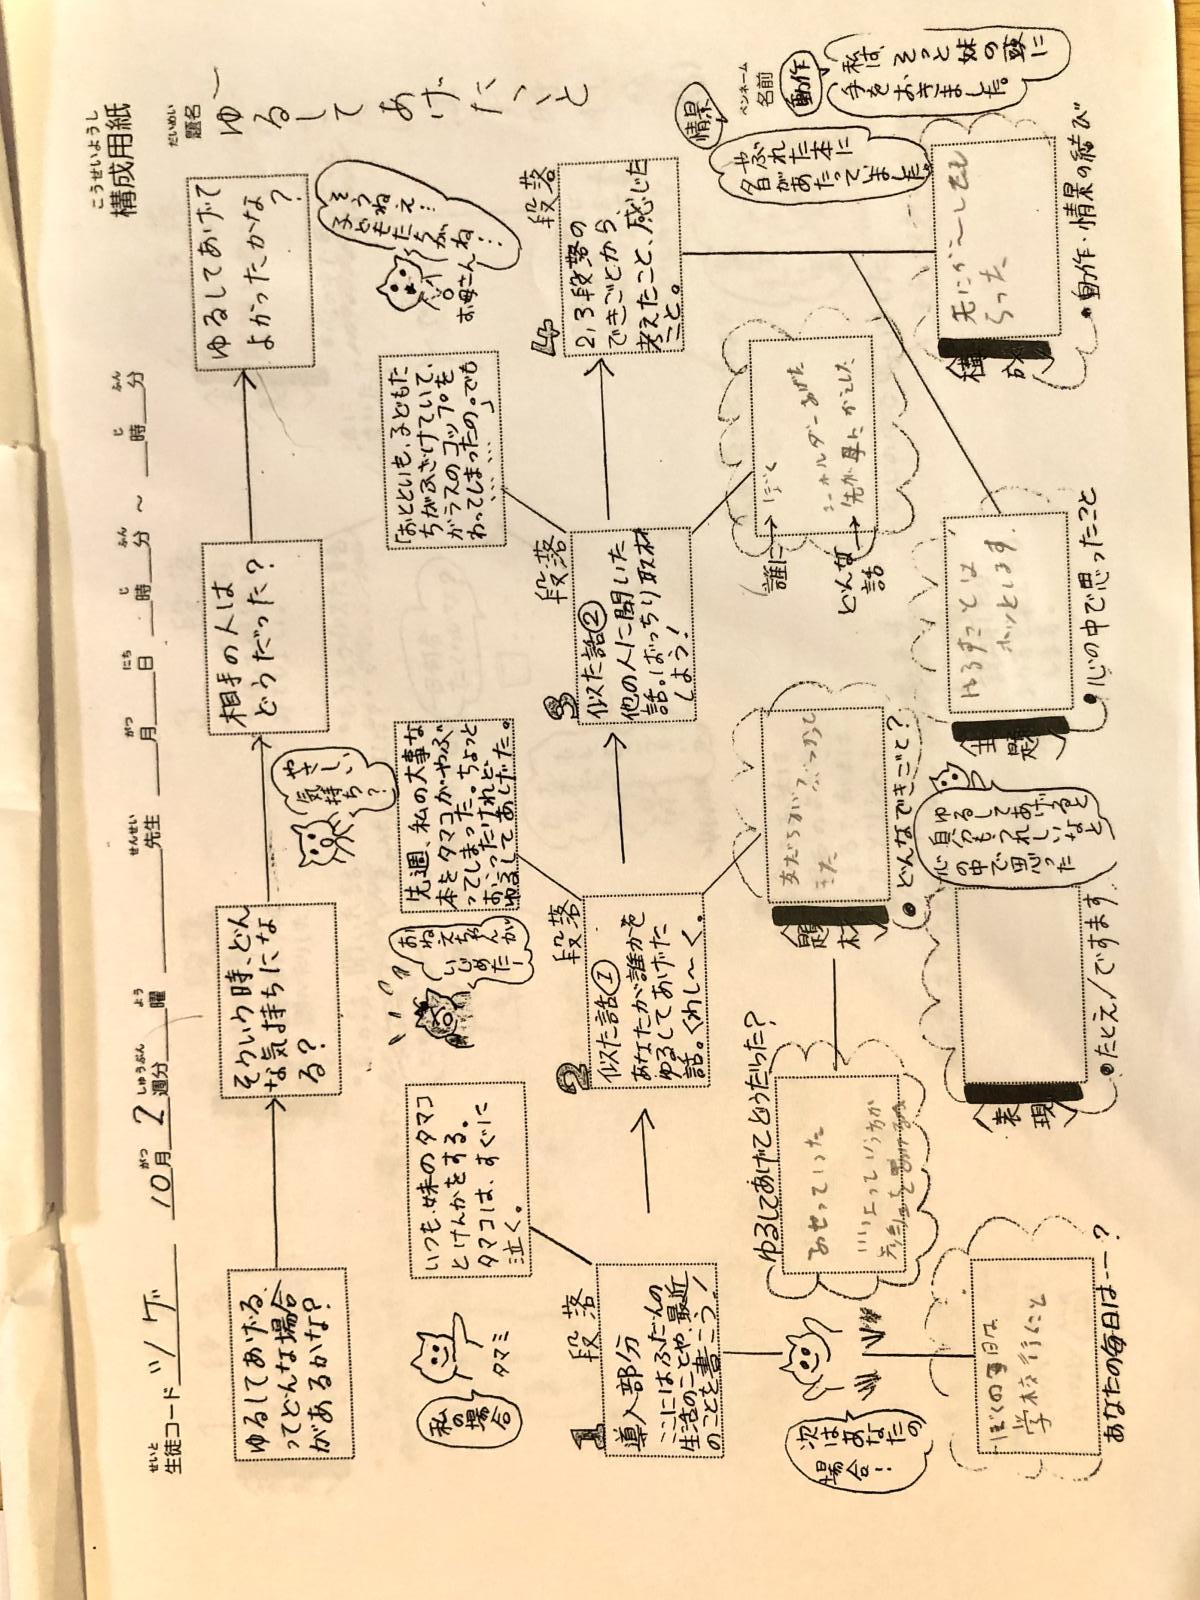 構成用紙
こうせいようし
生徒コード ツゲ 10月2週分 曜 先生 月 日 時 分 ～ 時 分
せいと がつ しゅうぶん よう せんせい がつ にち じ ふん じ ふん
題名 ゆるしてあげたこと
だいめい
ペンネーム
名前
ゆるしてあげる、
ってどんな場合
があるかな?
そういう時、どん
な気持ちにな
る?
やさしい
気持ち?
相手の人は
どうだった?
ゆるしてあげて
よかったかな?
そう
ねえ…
子どもたちがね…
お母さん
私の
場合
タマミ
いつも、妹のタマコ
とけんかをする。
タマコは、すぐに
泣く。
おねえちゃんが
いじめたー
先週、私の大事な
本をタマコがやぶ
ってしまった。ちょっと
おこったけれど
ゆるしてあげた。
「おとといも、子どもた
ちがふざけていて、
ガラスのコップを
わってしまったの。でも
……」
1段落
導入部分
ここにはふだんの
生活のことや、最近
のことを書こう!
2段落
似た話①
あなたが誰かを
ゆるしてあげた
話。くわし～く。
3段落
似た話②
他の人に聞いた
話。ばっちり取材
しよう!
4段落
2、3段落の
できごとから、
考えたこと、感じた
こと。
情景
やぶれた本に
夕日があたっていました。
動作
私は、そっと妹の頭に
手をおきました。
次は
あなたの
場合!
ぼくの毎日は
学校行くこと
あなたの毎日は…?
ゆるしてあげてどうだった?
あせっていた
題材
どんなできごと?
誰に→
どんな話→
構成
動作・情景の結び
主題
ゆるすことは
ホッとします。
心の中で思ったこと
ゆるしてあげると
自分もうれしいなと
心の中で思った
表現
たとえ/ですます